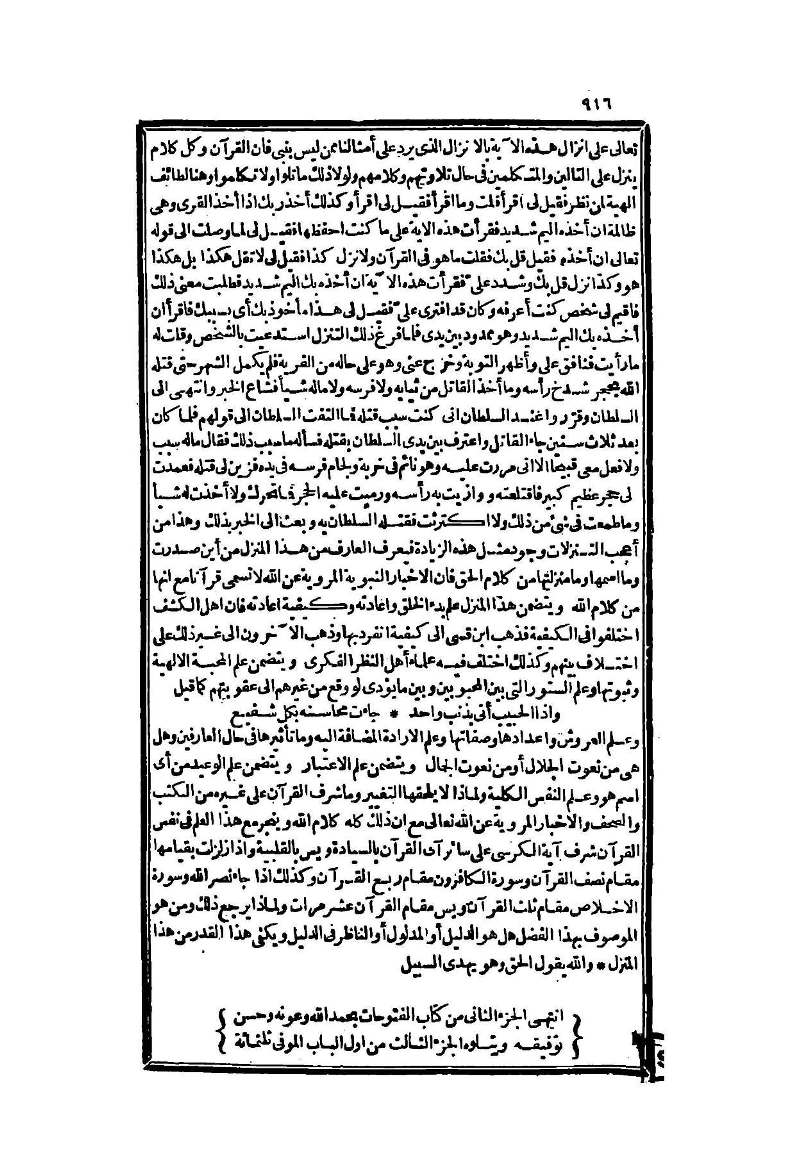 ٩١٦
تعالى على انزال هذه الآية بالانزال الذى يرد على أمثالنا ممن ليس بنبى فان القرآن وكل كلام
ينزل على التالين والمتكلمين فى حال تلاوتهم وكلامهم ولولا ذلك ما تلوا ولا تكلموا وهنا لطائف
الهية لمن نظر فقيل لى اقرأ قلت وما اقرأ فقيل لى اقرأ وكذلك أخذ ربك اذا أخذ القرى وهى
ظالمة ان أخذه اليم شديد فقرأت هذه الاية على ما كنت احفظها فقيل لى لما وصلت الى قوله
تعالى ان أخذه فقيل قل بك فقلت ما هو فى القرآن ولا نزل كذا فقيل لى لا تقل هكذا بل هكذا
هو وكذا نزل قل بك وشدد على فقرأت هذه الآية ان أخذه بك اليم شديد فطلبت معنى ذلك
فاقيم لى شخص كنت أعرفه وكان قد افترى على فقيل لى هذا مأخوذ بك أى بسببك فاقرأ ان
أخذه بك اليم شديد وهو ممدود بين يدى فلما فرغ ذلك التنزل استدعيت بالشخص وقلت له
ما رأيت فنافق على وأظهر التوبة وخرج عنى وهو على حاله من الفرية فلم يكمل الشهر حتى قتله
الله بحجر شدخ رأسه وما أخذ القاتل من ثيابه ولا فرسه ولا ماله شيأ فشاع الخبر وانتهى الى
السلطان وقرروا عند السلطان انى كنت سبب قتله فما التفت السلطان الى قولهم فلما كان
بعد ثلاث سنين جاء القاتل واعترف بين يدى السلطان بقتله فسأله ما سبب ذلك فقال ماله سبب
ولا فعل معى قبيحا الا انى مررت عليه وهو نائم فى خربة ولجام فرسه فى يده فزين لى قتله فعمدت
لى حجر عظيم كبير فاقتلعته ووازيت به رأسه ورميت عليه الحجر فما تحرك ولا أخذت له شيأ
وما طمعت فى شئ من ذلك ولا اكترثت فقتله السلطان به وبعث الى الخبر بذلك وهذا من
أعجب التنزلات وجود مثل هذه الزيادة فيعرف العارف من هذا المنزل من أين صدرت
وما اسمها وما منزلتها من كلام الحق فان الاخبار النبوية المروية عن الله لا تسمى قرآنا مع انها
من كلام الله ويتضمن هذا المنزل علم بدء الخلق واعادته وكيفية اعادته فان اهل الكشف
اختلفوا فى الكيفية فذهب ابن قسى الى كيفية انفرد بها وذهب الآخرون الى غير ذلك على
اختلاف بينهم وكذلك اختلف فيه علماء أهل النظر الفكرى ويتضمن علم المحبة الالهية
وثبوتها وعلم الستور التى بين المحبوبين وبين ما يؤدى لو وقع من غيرهم الى عقوبتهم كما قيل
واذا الحبيب أتى بذنب واحد * جاءت محاسنه بكل شفيع
وعلم العروش واعدادها وصفاتها وعلم الارادة المضافة اليه وما تأثيرها فى حال العارفين وهل
هى من نعوت الجلال أو من نعوت الجمال ويتضمن علم الاعتبار ويتضمن علم الوعيد من أى
اسم هو وعلم النفس الكلية ولماذا لا يلحقها التغيير وما شرف القرآن على غيره من الكتب
والصحف والاخبار المروية عن الله تعالى مع ان ذلك كله كلام الله وينجر مع هذا العلم فى نفس
القرآن شرف آية الكرسى على سائر آى القرآن بالسيادة ويس بالقلبية واذا زلزلت بقيامها
مقام نصف القرآن وسورة الكافرون مقام ربع القرآن وكذلك اذا جاء نصر الله وسورة
الاخلاص مقام ثلث القرآن ويس مقام القرآن عشر مرات ولماذا يرجع ذلك ومن هو
الموصوف بهذا الفضل هل هو الدليل أو المدلول أو الناظر فى الدليل ويكفى هذا القدر من هذا
المنزل * والله يقول الحق وهو يهدى السبيل
انتهى الجزء الثانى من كتاب الفتوحات بحمد الله وعونه وحسن
توفيقه ويتلوه الجزء الثالث من اول الباب الموفى ثلثمائة